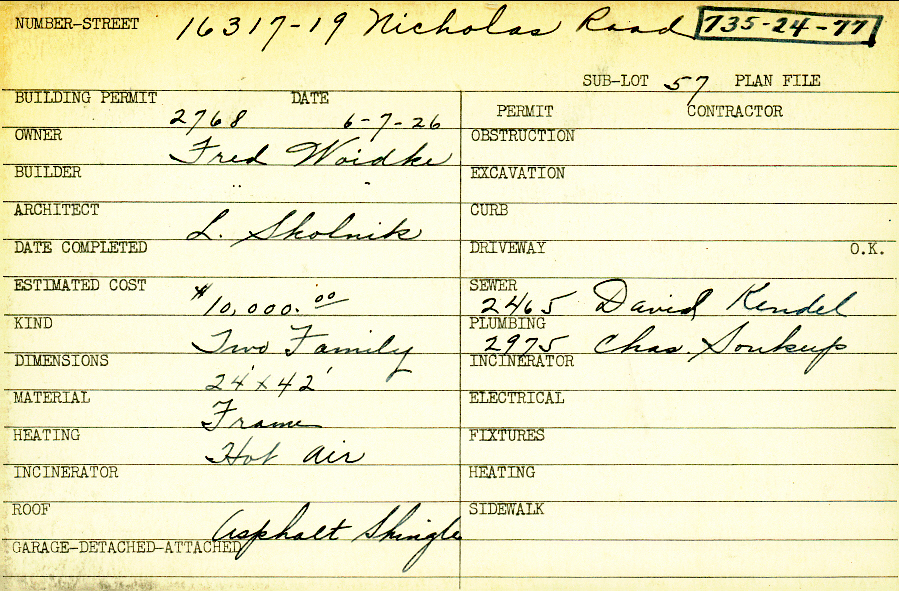 NUMBER-STREET 16317-19 Nicholas Road 735-24-77
SUB-LOT 57 PLAN FILE
BUILDING PERMIT DATE
2768 6-7-26
PERMIT CONTRACTOR
OWNER Fred Woidke
OBSTRUCTION
BUILDER " "
EXCAVATION
ARCHITECT L. Skolnik
CURB
DATE COMPLETED
DRIVEWAY O.K.
ESTIMATED COST $10,000.00
SEWER 2465 David Kendel
KIND Two Family
PLUMBING 2975 Chas. Soukup
DIMENSIONS 24' x 42'
INCINERATOR
MATERIAL Frame
ELECTRICAL
HEATING Hot Air
FIXTURES
INCINERATOR
HEATING
ROOF Asphalt Shingle
SIDEWALK
GARAGE-DETACHED-ATTACHED